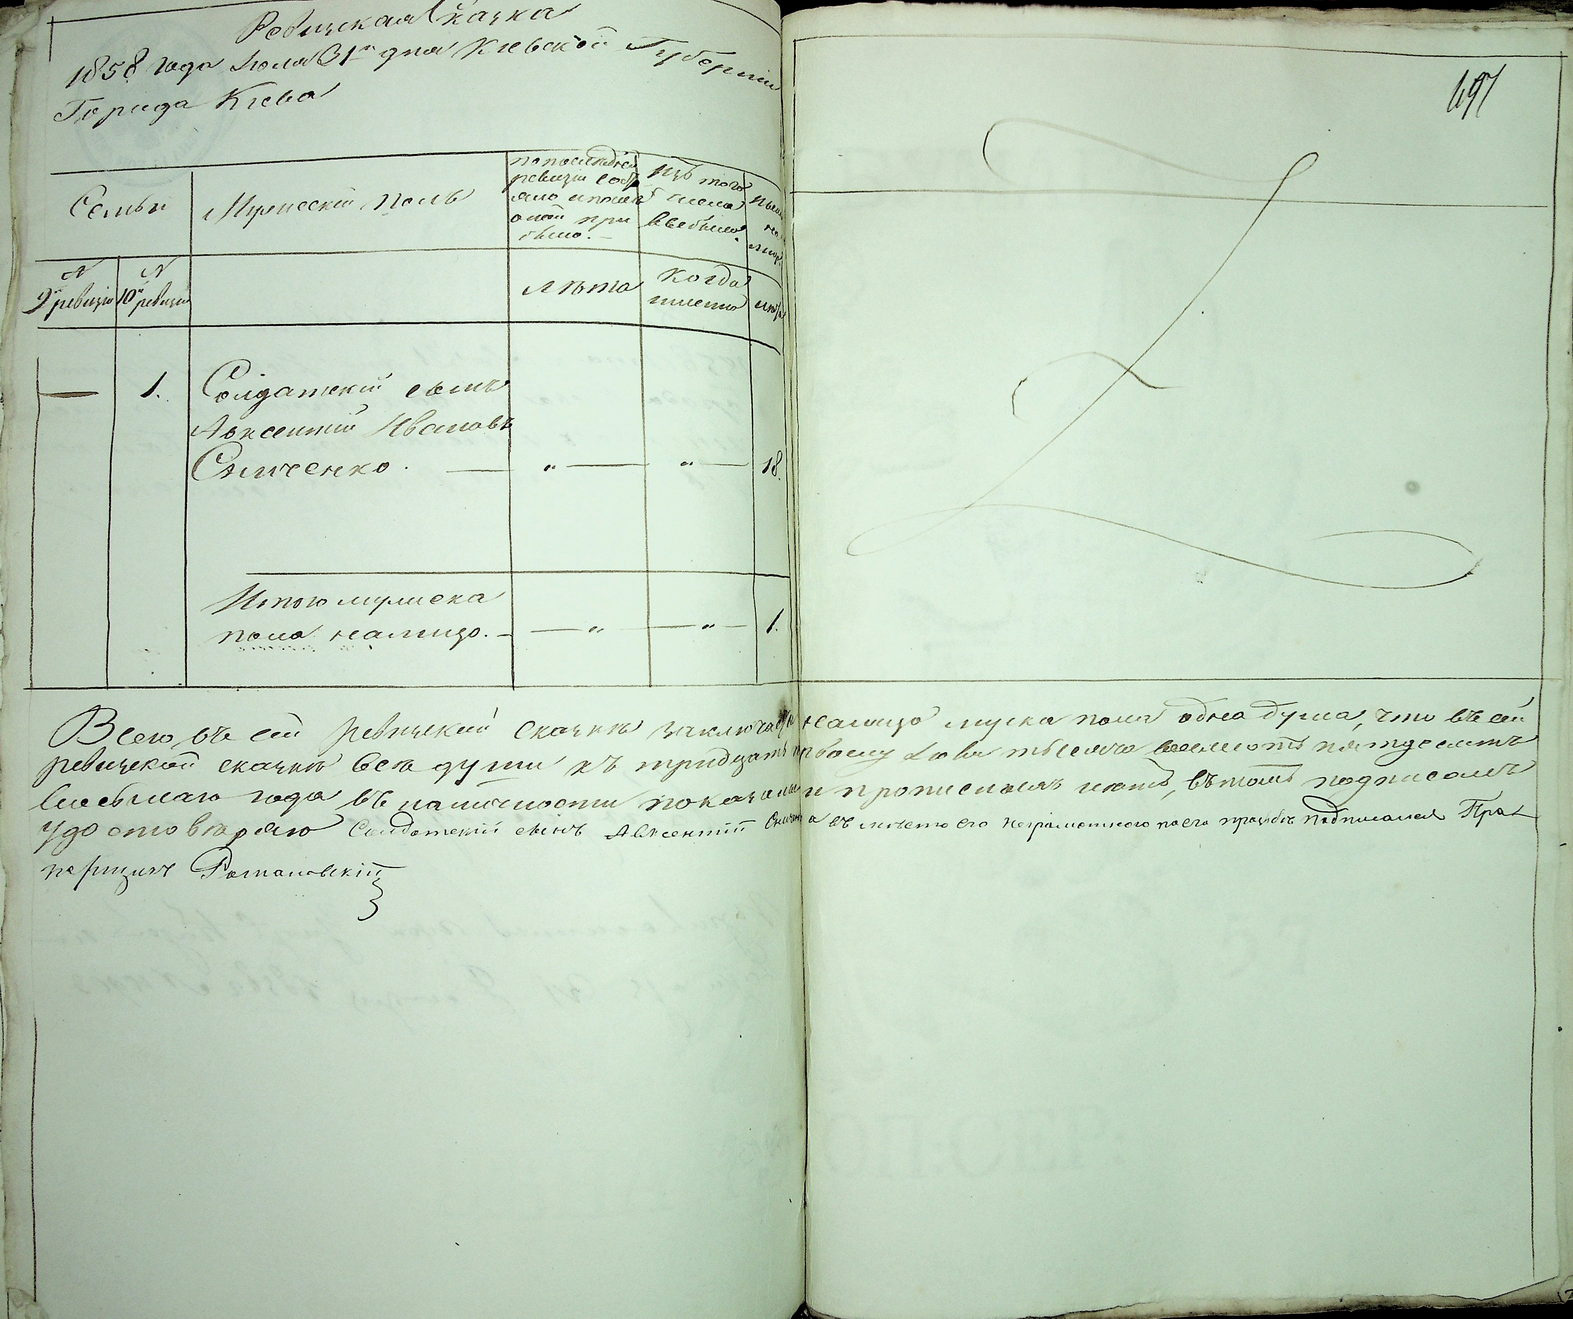 Ревизская Сказка
1858 года Июля 31го дня Киевской Губерніи
Города Кіева
697
Семьи
Мужескій полъ
по последней
ревизіи состо
яло и после
оной при
было.
Изъ того
числа
выбыло.
Ныне
на
лицо
N
9й ревизіи
N
10й ревизіи
Лѣта
Когда
именно
лѣта
— 1. Солдатскій сынъ
Авксентій Ивановъ
Силченко. — „ — „ — 18.
Итого мужеска
пола налицо. — „ — „ — 1.
Всего въ сей ревизской сказкѣ заключается налицо муска пола одна душа, что въ сей
ревизской сказкѣ все души къ тридцать первому Іюля тысяча восемсотъ пятдесятъ
восьмаго года въ наличности показаны и прописныхъ нетъ, въ томъ подписомъ
удостоверяю Солдатскій сынъ Авксентій а въ место его неграмотного по его прозьбе подписался Пра
порщикъ Романовскій